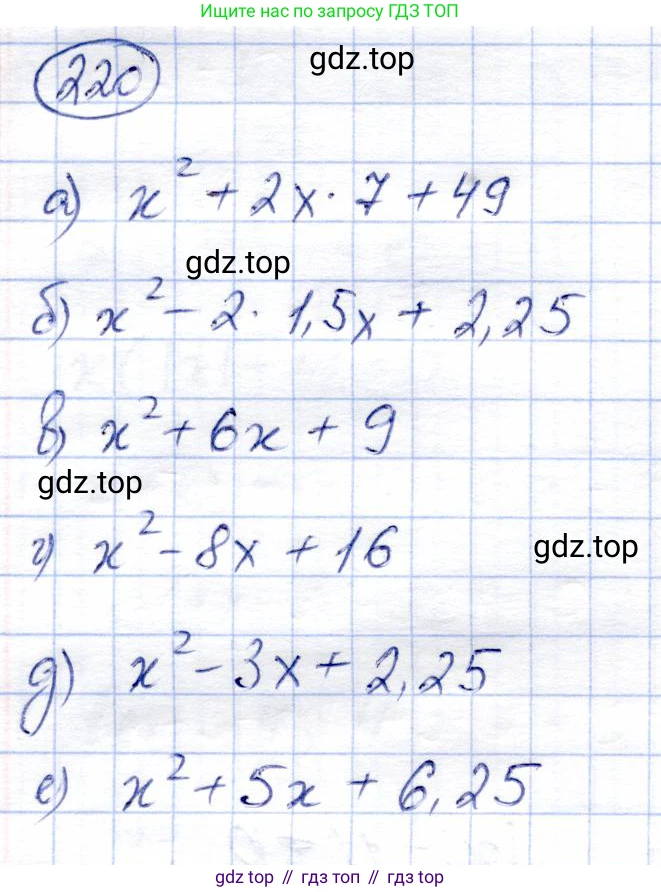 Ищите нас по запросу ГДЗ ТОП
220
gdz.top
а) x² + 2x · 7 + 49
gdz.top
б) x² - 2 · 1,5x + 2,25
в) x² + 6x + 9
gdz.top
г) x² - 8x + 16
gdz.top
д) x² - 3x + 2,25
е) x² + 5x + 6,25
gdz.top // гдз.топ // гдз.top